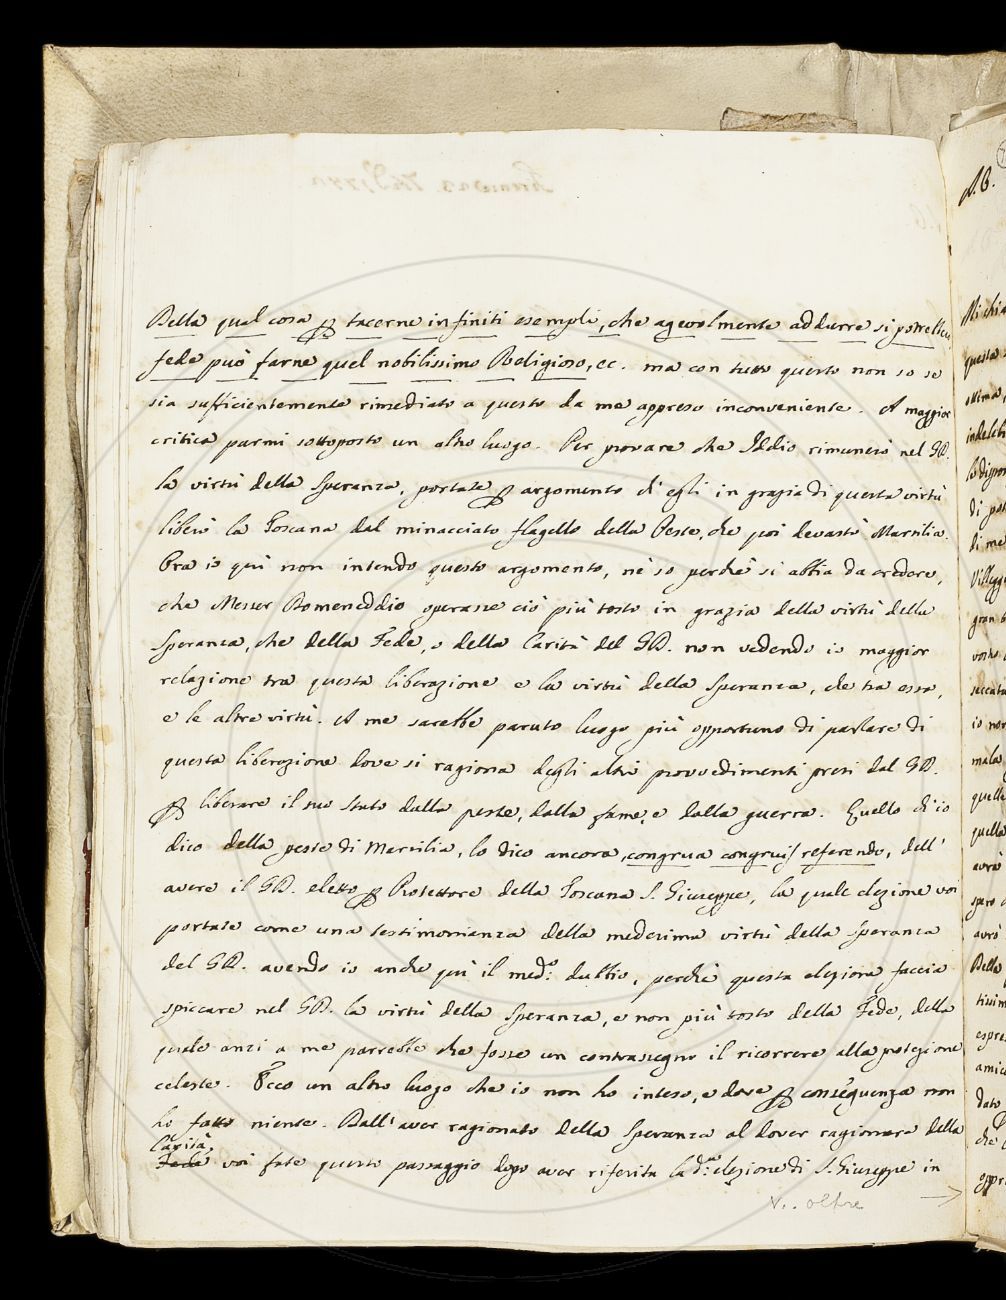 Della qual cosa per tacerne infiniti esempli, che agevolmente addurre si potrebbero
fede può farne quel nobilissimo Religioso, ec. ma con tutto questo non so se
sia sufficientemente rimediato a questo da me appreso inconveniente. A maggior
critica parmi sottoposto un altro luogo. Per provare che Iddio rimunerò nel GD.
la virtù della Speranza, portate per argomento ch'egli in grazia di questa virtù
liberò la Toscana dal minacciato flagello della Peste, che poi devastò Marsilia.
Ora io quì non intendo questo argomento, nè so perchè si abbia da credere,
che Messer Domeneddio operasse ciò più tosto in grazia della virtù della
Speranza, che della Fede, o della Carità del GD. non vedendo io maggior
relazione tra questa liberazione e la virtù della Speranza, che tra essa,
e le altre virtù. A me sarebbe paruto luogo più opportuno di parlare di
questa liberazione dove si ragiona degli altri provvedimenti presi dal GD.
per liberare il suo Stato dalla peste, dalla fame, e dalla guerra. Quello ch'io
dico della peste di Marsilia, lo dico ancora, congrua congruis referendo, dell'
avere il GD. eletto per Protettore della Toscana S. Giuseppe, la quale elezione voi
portate come una testimonianza della medesima virtù della Speranza
del GD. avendo io anche quì il med.º dubbio, perchè questa elezione faccia
spiccare nel GD. la virtù della Speranza, e non più tosto della Fede, della
quale anzi a me parrebbe che fosse un contrassegno il ricorrere alla protezione
celeste. Ecco un altro luogo che io non ho inteso, e dove per conseguenza non
ho fatto niente. Dall'aver ragionato della Speranza al dover ragionare della
Carità
Fede voi fate questo passaggio dopo aver riferita la d.ª elezione di S. Giuseppe in
V. oltre →